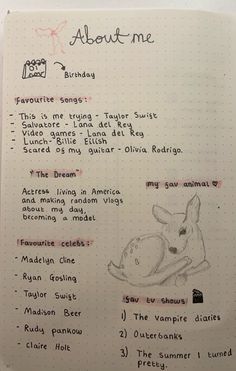 About me
Birthday
Favourite songs:
- This is me trying - Taylor Swift
- Salvatore - Lana del Rey
- Video games - Lana del Rey
- Lunch - Billie Eilish
- Scared of my guitar - Olivia Rodrigo.
"The Dream"
Actress living in America
and making random vlogs
about my day,
becoming a model
my fav animal
Favourite celebs:
- Madelyn Cline
- Ryan Gosling
- Taylor Swift
- Madison Beer
- Rudy pankow
- Claire Holt
fav tv shows
1) The vampire diaries
2) Outerbanks
3) The Summer I turned
pretty.